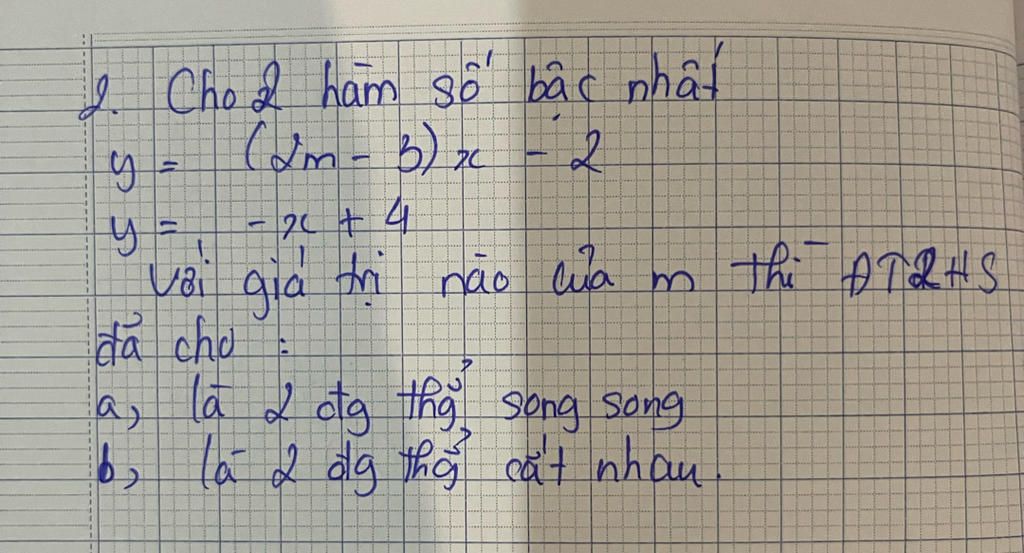 2. Cho 2 hàm số bậc nhất
y = (2m - 3)x - 2
y = -x + 4
Với giá trị nào của m thì ĐT2HS
đã cho :
a, là 2 đg thg̉ song song
b, là 2 đg thg̉ cắt nhau.